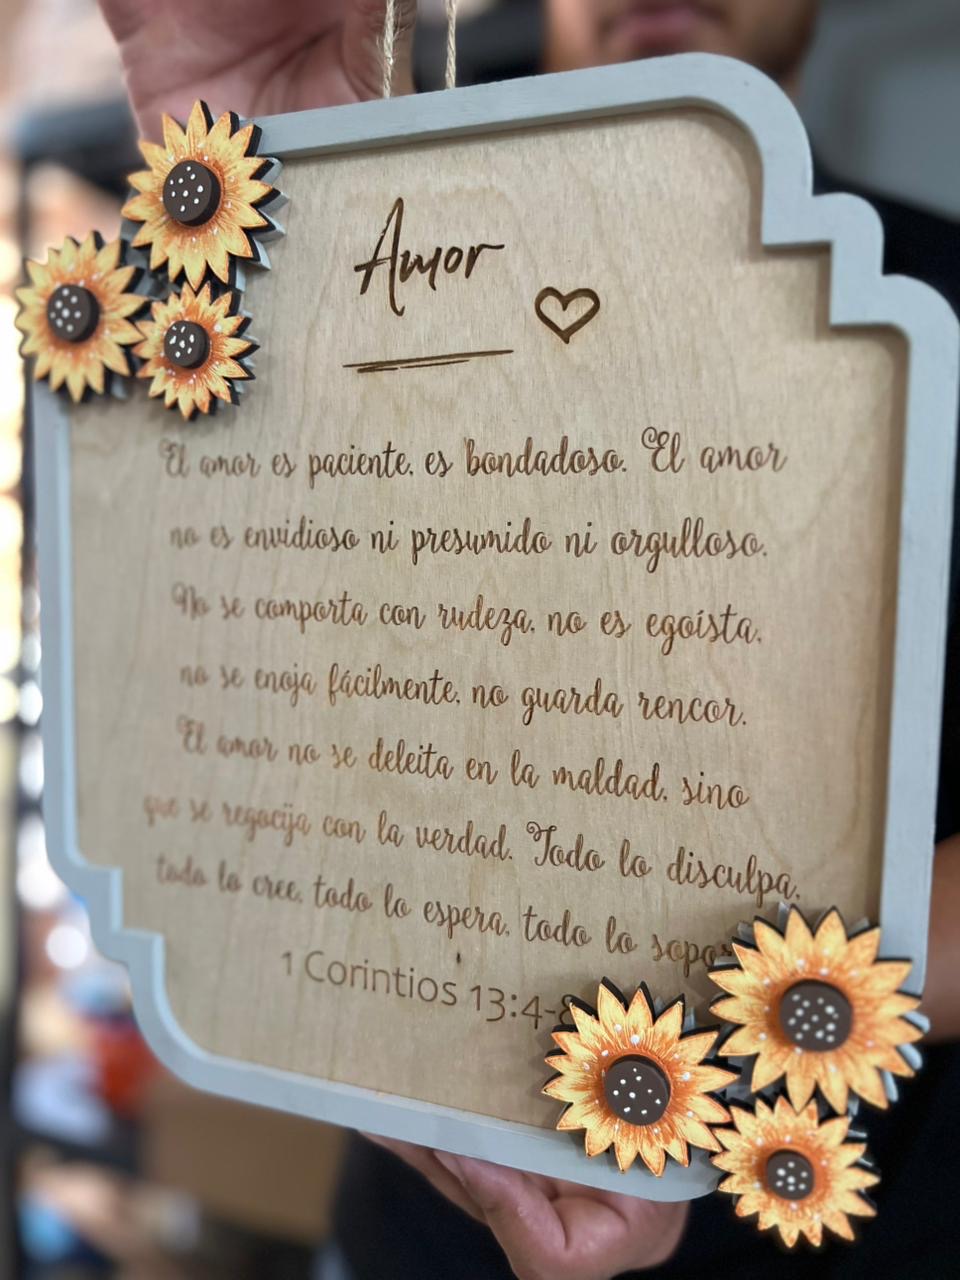 Amor
El amor es paciente, es bondadoso. El amor
no es envidioso ni presumido ni orgulloso.
No se comporta con rudeza, no es egoísta,
no se enoja fácilmente, no guarda rencor.
El amor no se deleita en la maldad, sino
que se regocija con la verdad. Todo lo disculpa,
todo lo cree, todo lo espera, todo lo
1 Corintios 13:4-8